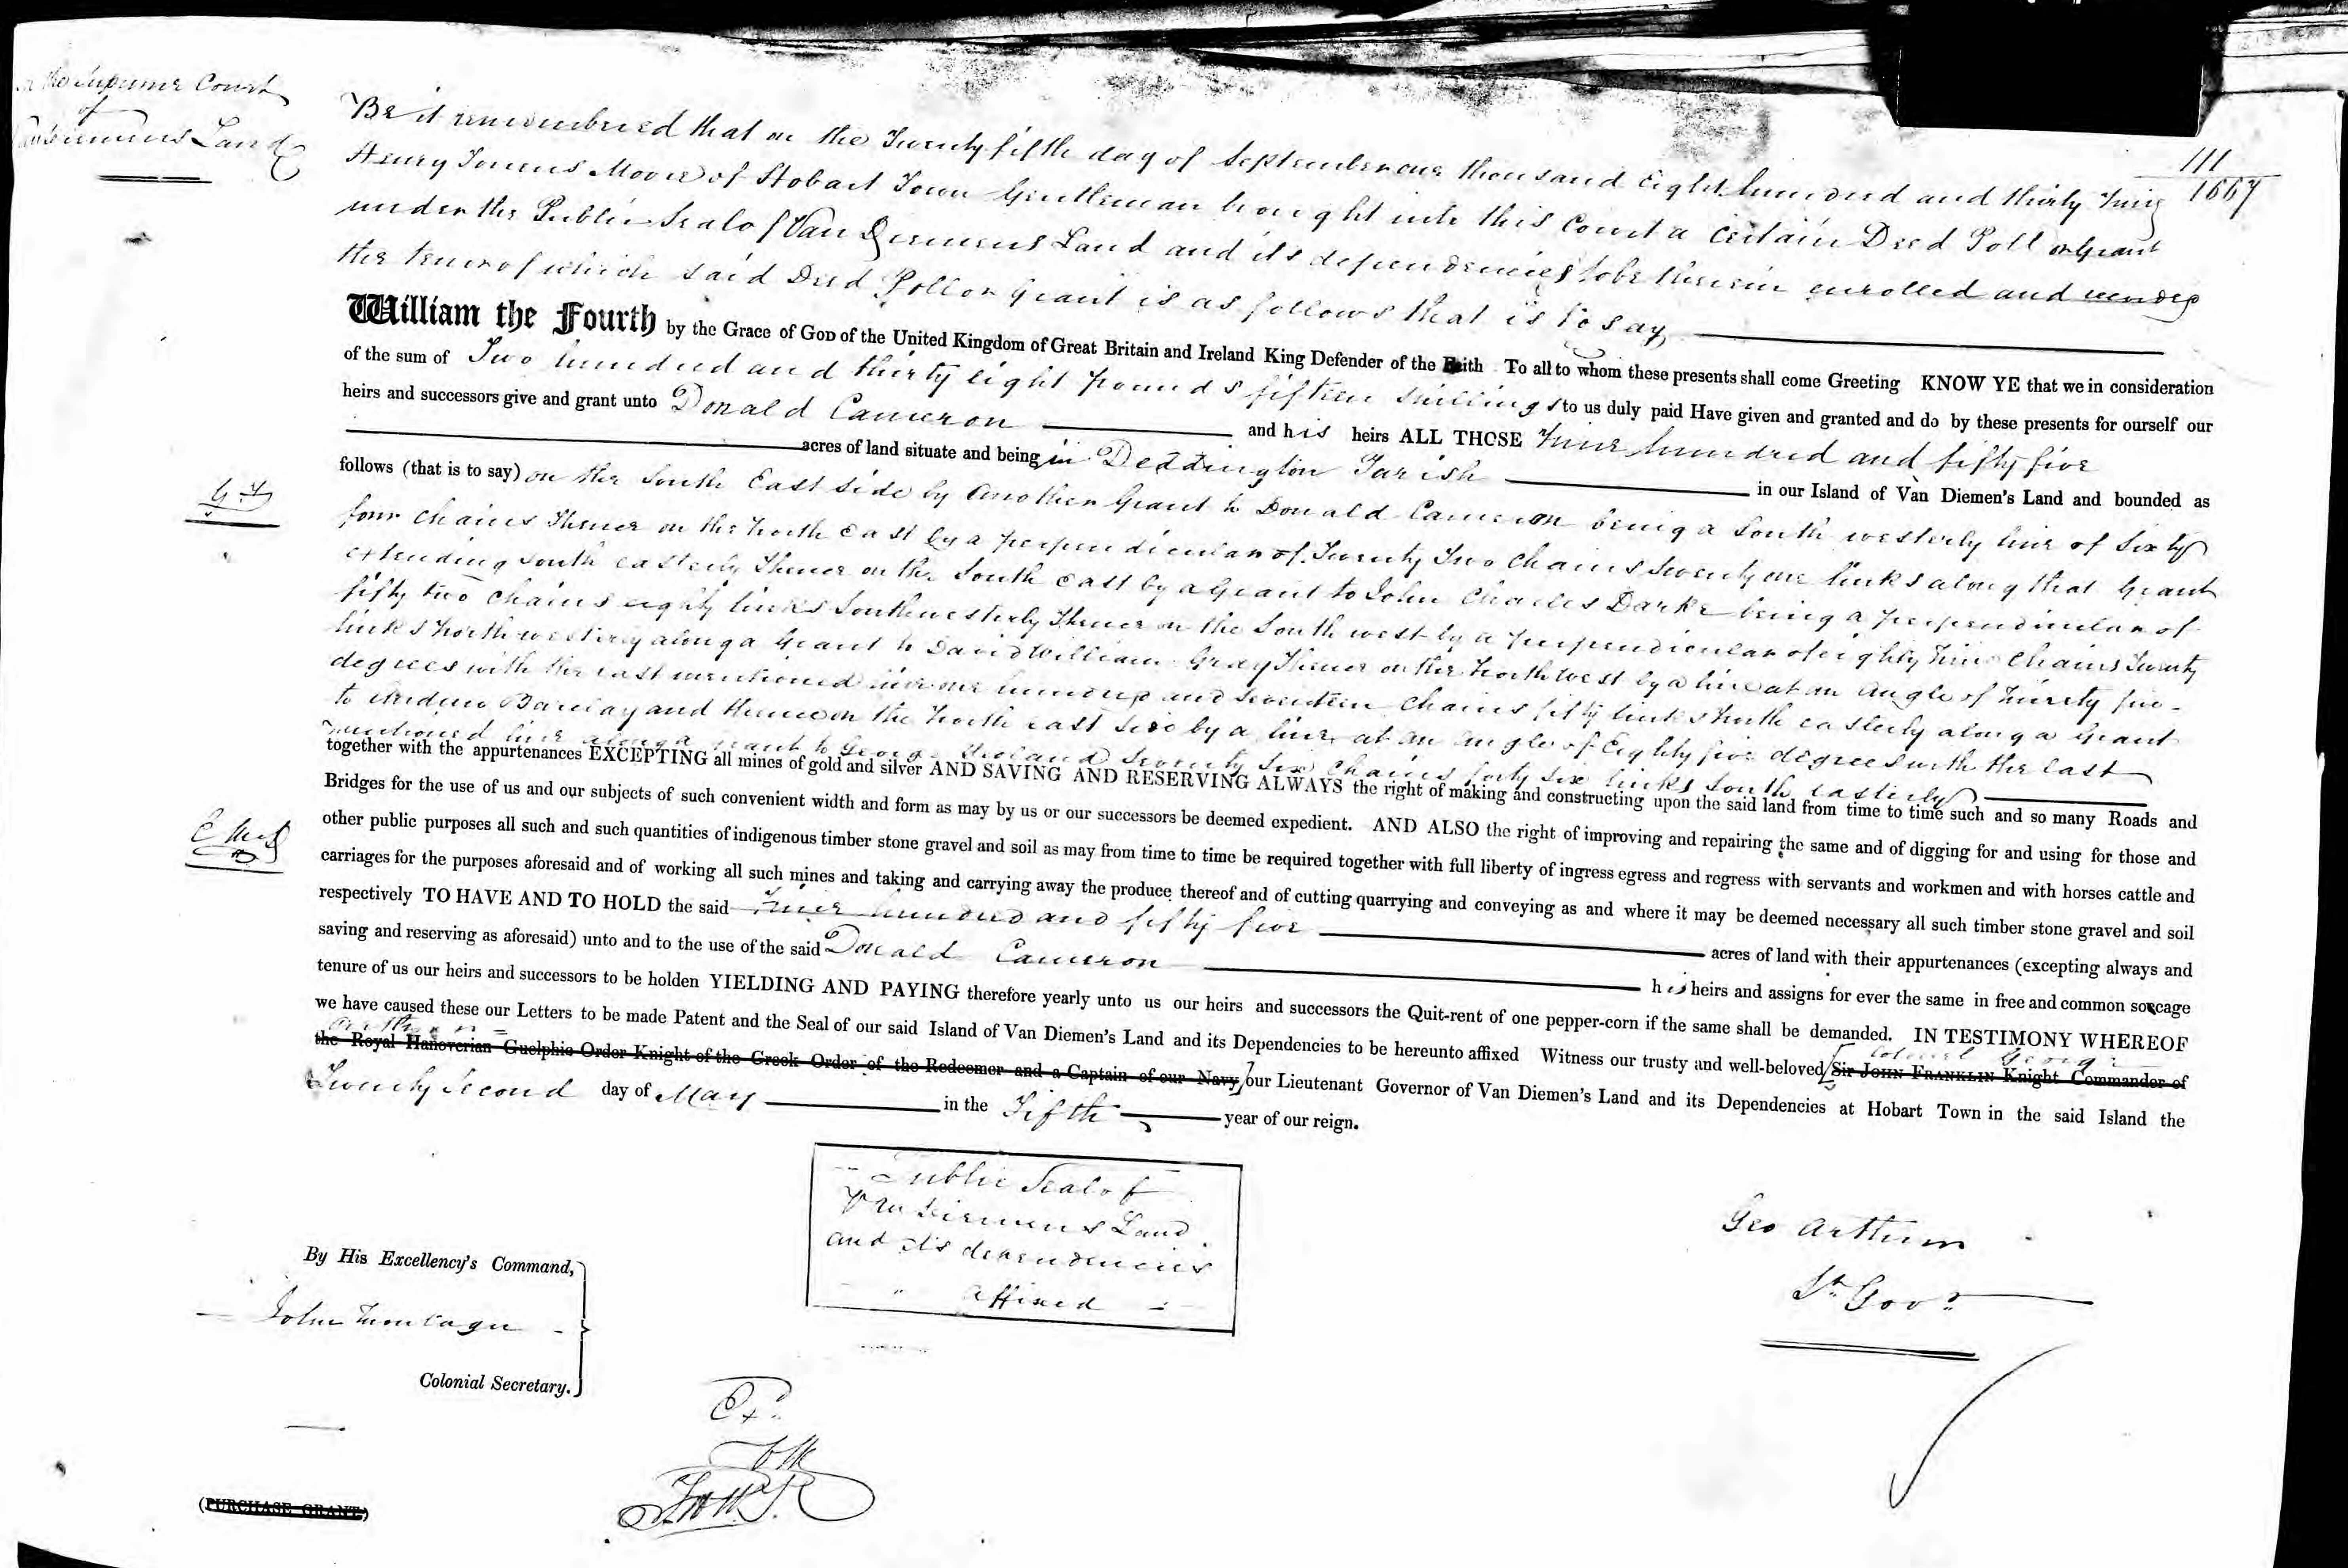 In the Supreme Court
of
Van Diemens Land
111
1667
Be it remembered that on the Twenty fifth day of September one thousand Eight hundred and thirty nine
Henry Moore of Hobart Town Gentleman brought into this Court a certain Deed Poll or Grant
under the Public Seal of Van Diemens Land and its dependencies to be therein enrolled and
the tenor of which said Deed Poll or Grant is as follows that is to say
William the Fourth by the Grace of GOD of the United Kingdom of Great Britain and Ireland King Defender of the Faith To all to whom these presents shall come Greeting KNOW YE that we in consideration
of the sum of Two hundred and thirty eight pounds fifteen shillings to us duly paid Have given and granted and do by these presents for ourself our
heirs and successors give and grant unto Donald Cameron and his heirs ALL THOSE Nine hundred and fifty five
acres of land situate and being in Deddington Parish in our Island of Van Diemen's Land and bounded as
follows (that is to say) on the South East side by another Grant to Donald Cameron being a South westerly line of Sixty
four chains Thence on the North East by a perpendicular of Twenty Two chains Seventy one links along that Grant
extending South easterly Thence on the South East by a Grant to John Charles Darke being a perpendicular of
fifty two chains eighty links Southwesterly Thence on the South west by a perpendicular of eighty nine chains Twenty
links North westerly along a Grant to David William Gray Thence on the North West by a line at an angle of Ninety five
degrees with the last mentioned line one hundred and Seventeen chains fifty links North easterly along a Grant
to Andrew Barclay and thence on the North East side by a line at an angle of Eighty five degrees with the last
mentioned line along a grant to George Seventy Six chains forty six links South easterly
together with the appurtenances EXCEPTING all mines of gold and silver AND SAVING AND RESERVING ALWAYS the right of making and constructing upon the said land from time to time such and so many Roads and
Bridges for the use of us and our subjects of such convenient width and form as may by us or our successors be deemed expedient. AND ALSO the right of improving and repairing the same and of digging for and using for those and
other public purposes all such and such quantities of indigenous timber stone gravel and soil as may from time to time be required together with full liberty of ingress egress and regress with servants and workmen and with horses cattle and
carriages for the purposes aforesaid and of working all such mines and taking and carrying away the produce thereof and of cutting quarrying and conveying as and where it may be deemed necessary all such timber stone gravel and soil
respectively TO HAVE AND TO HOLD the said Nine hundred and fifty five acres of land with their appurtenances (excepting always and
saving and reserving as aforesaid) unto and to the use of the said Donald Cameron his heirs and assigns for ever the same in free and common soccage
tenure of us our heirs and successors to be holden YIELDING AND PAYING therefore yearly unto us our heirs and successors the Quit-rent of one pepper-corn if the same shall be demanded. IN TESTIMONY WHEREOF
we have caused these our Letters to be made Patent and the Seal of our said Island of Van Diemen's Land and its Dependencies to be hereunto affixed Witness our trusty and well-beloved Sir JOHN FRANKLIN Knight Commander of
Colonel George
Arthur
the Royal Hanoverian Guelphic Order Knight of the Greek Order of the Redeemer and a Captain of our Navy our Lieutenant Governor of Van Diemen's Land and its Dependencies at Hobart Town in the said Island the
Twenty second day of May in the Fifth year of our reign.
Public Seal of
Van Diemens Land
and its dependencies
affixed
Geo Arthur
Lt Govr
By His Excellency's Command,
John Montagu
Colonial Secretary.
(PURCHASE GRANT)